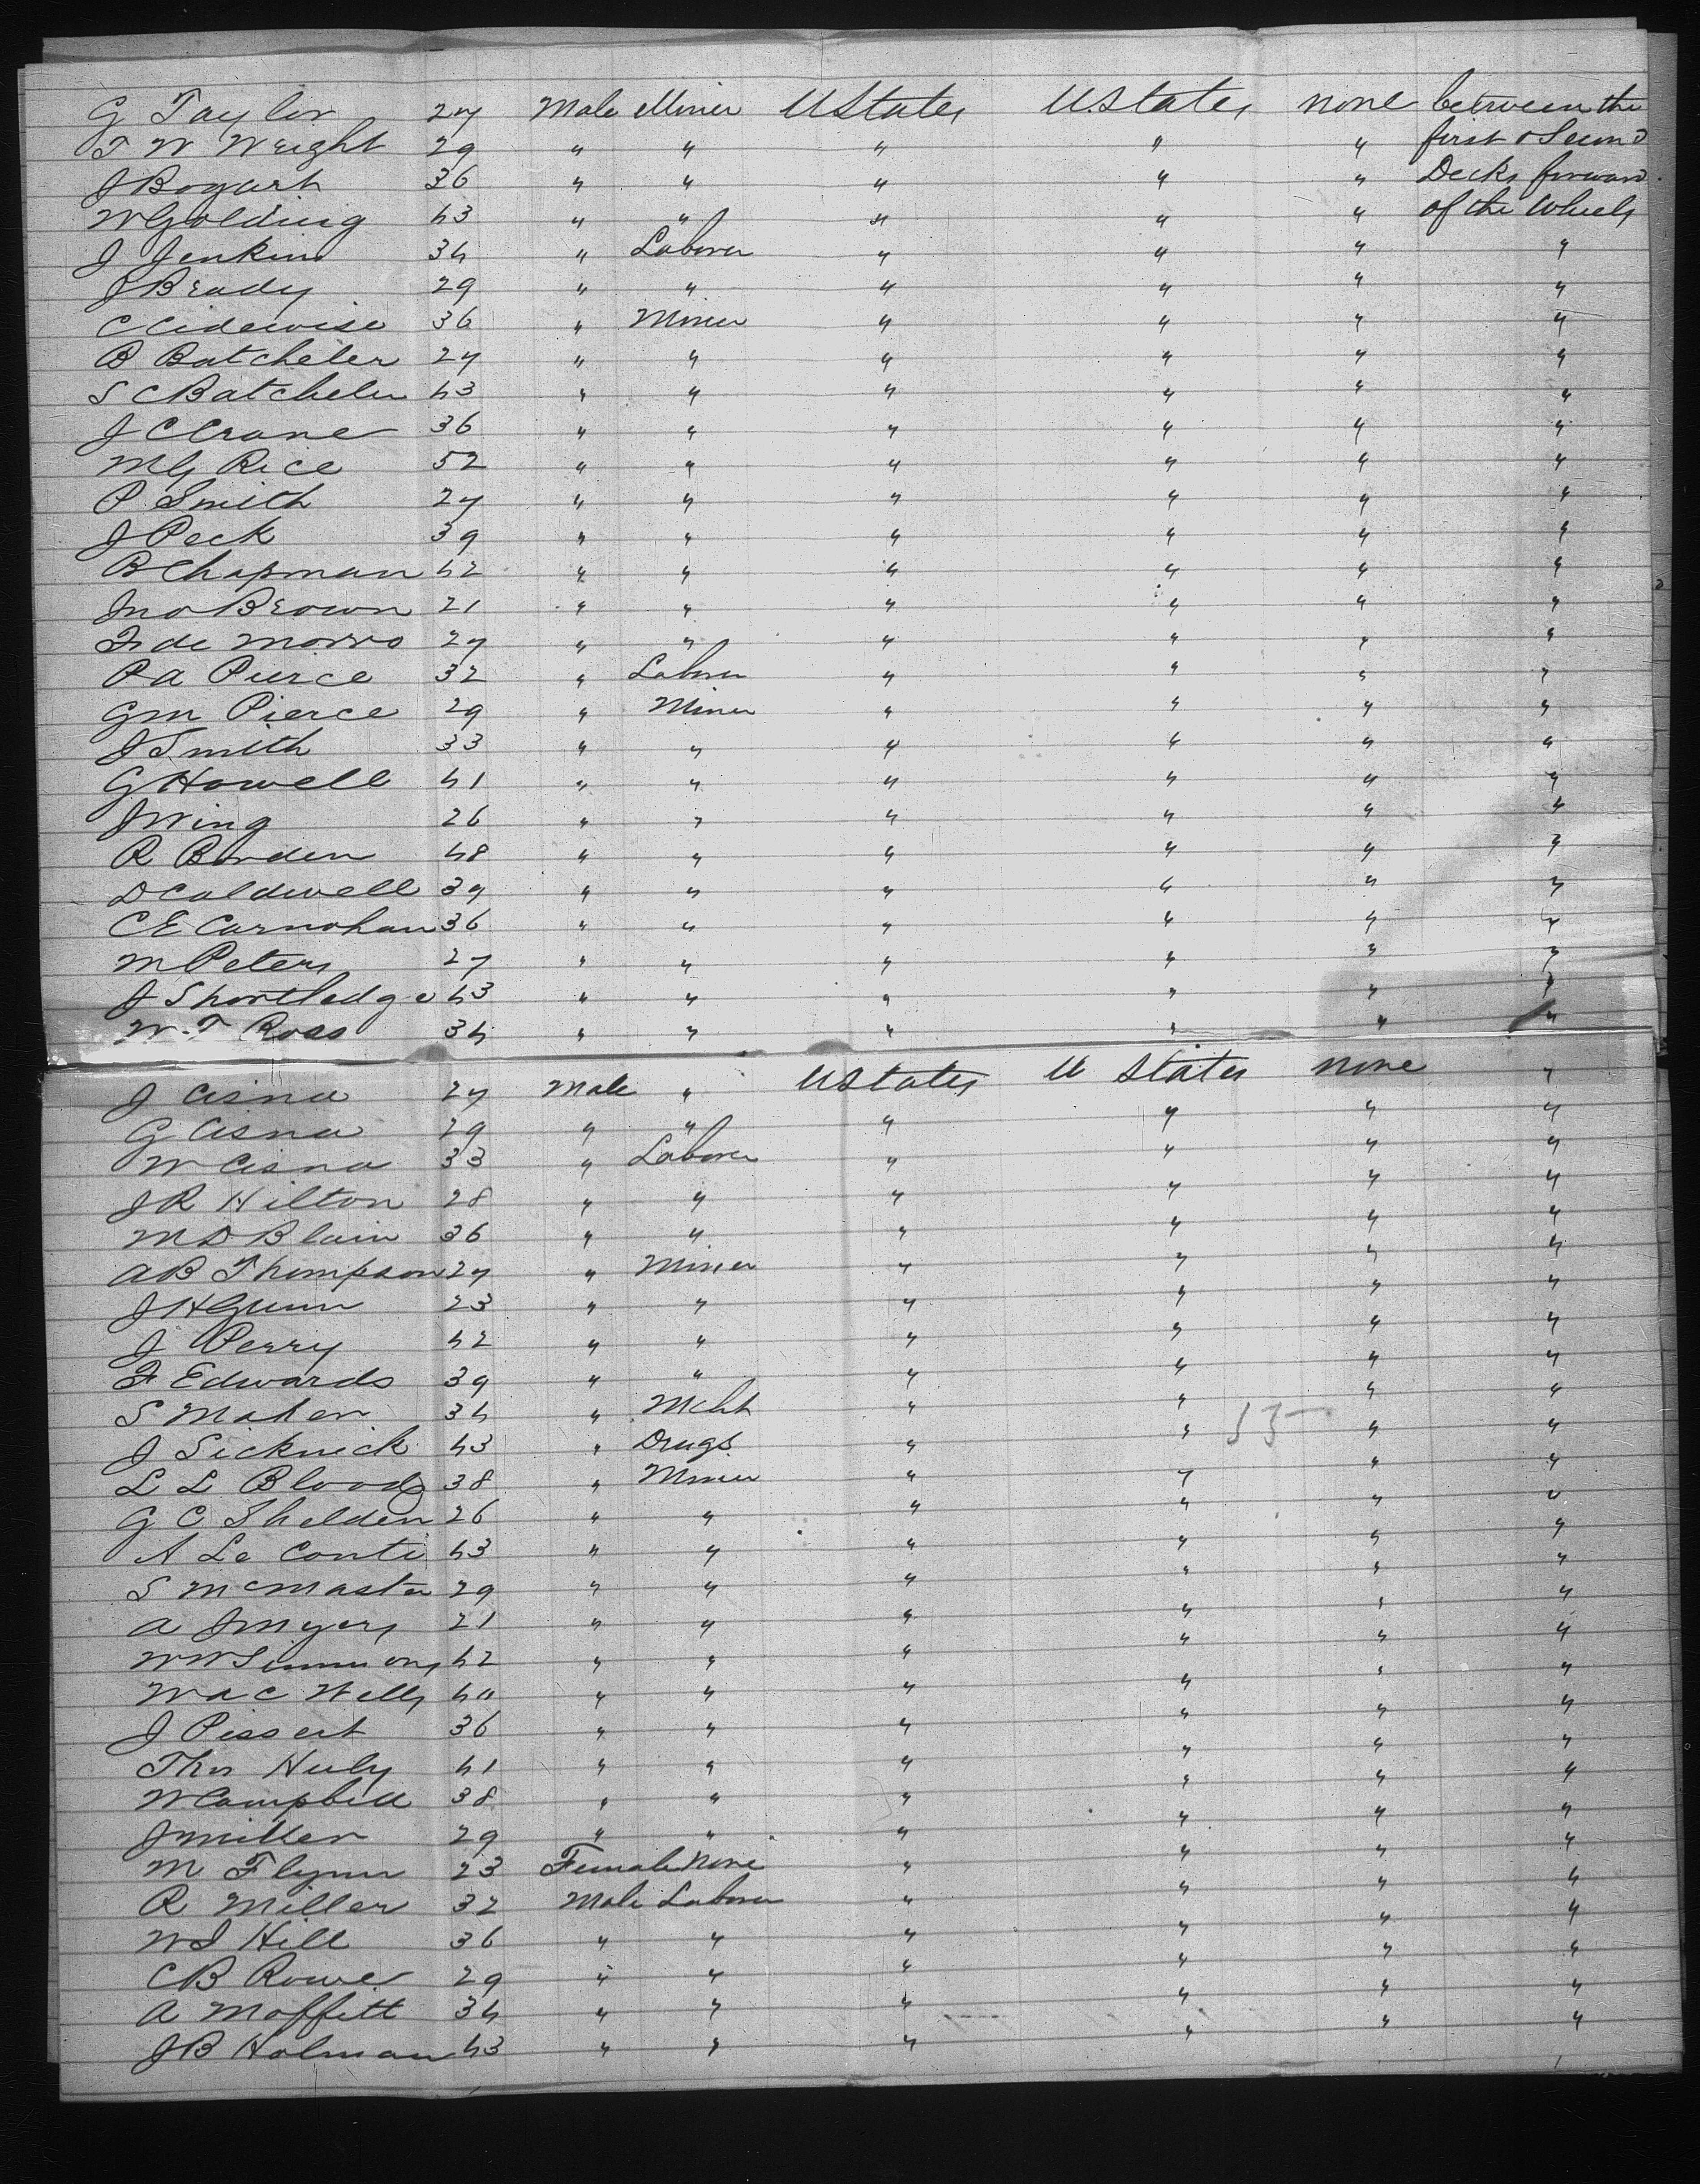 G Taylor 27 Male Miner UStates U.States none between the
T W Wright 29 " " " " " first & Second
J Bogart 36 " " " " " Decks forward
W Golding 43 " " " " " of the Wheels
J Jenkins 34 " Laborer " " " "
J Brady 29 " " " " " "
C 36 " Miner " " " "
B Batcheler 27 " " " " " "
S C Batcheler 43 " " " " " "
J C Crane 36 " " " " " "
M G Rice 52 " " " " " "
P Smith 27 " " " " " "
J Peck 39 " " " " " "
B Chapman 42 " " " " " "
Jno Brown 21 " " " " " "
F de Morro 27 " " " " " "
P A Pierce 32 " Laborer " " " "
G M Pierce 29 " Miner " " " "
J Smith 33 " " " " " "
G Howell 41 " " " " " "
J Wing 26 " " " " " "
R Borden 48 " " " " " "
D Caldwell 39 " " " " " "
C E Carnohan 36 " " " " " "
M Peters 27 " " " " " "
J Shortledge 43 " " " " " "
W. T Ross 34 " " " " " "
J Cisna 27 Male " UStates U States none "
G Cisna 29 " " " " " "
W Cisna 33 " Laborer " " " "
J R Hilton 28 " " " " " "
M D Blain 36 " " " " " "
A B Thompson 27 " Miner " " " "
J H Gunn 23 " " " " " "
J Perry 42 " " " " " "
F Edwards 39 " " " " " "
S Maher 34 " Mcht " " " "
J Sicknick 43 " Drugs " " " "
L L Blood 38 " Miner " " " "
G C Shelden 26 " " " " " "
A Le Conti 43 " " " " " "
S McMaster 29 " " " " " "
A J Myers 21 " " " " " "
W W Simmons 42 " " " " " "
W A C Wells 40 " " " " " "
J Pissert 36 " " " " " "
Thos Huly 41 " " " " " "
W Campbell 38 " " " " " "
J Miller 29 " " " " " "
M Flynn 23 Female None " " " "
R Miller 32 Male Laborer " " " "
W S Hill 36 " " " " " "
C B Rowe 29 " " " " " "
A Moffitt 34 " " " " " "
J B Holman 43 " " " " " "